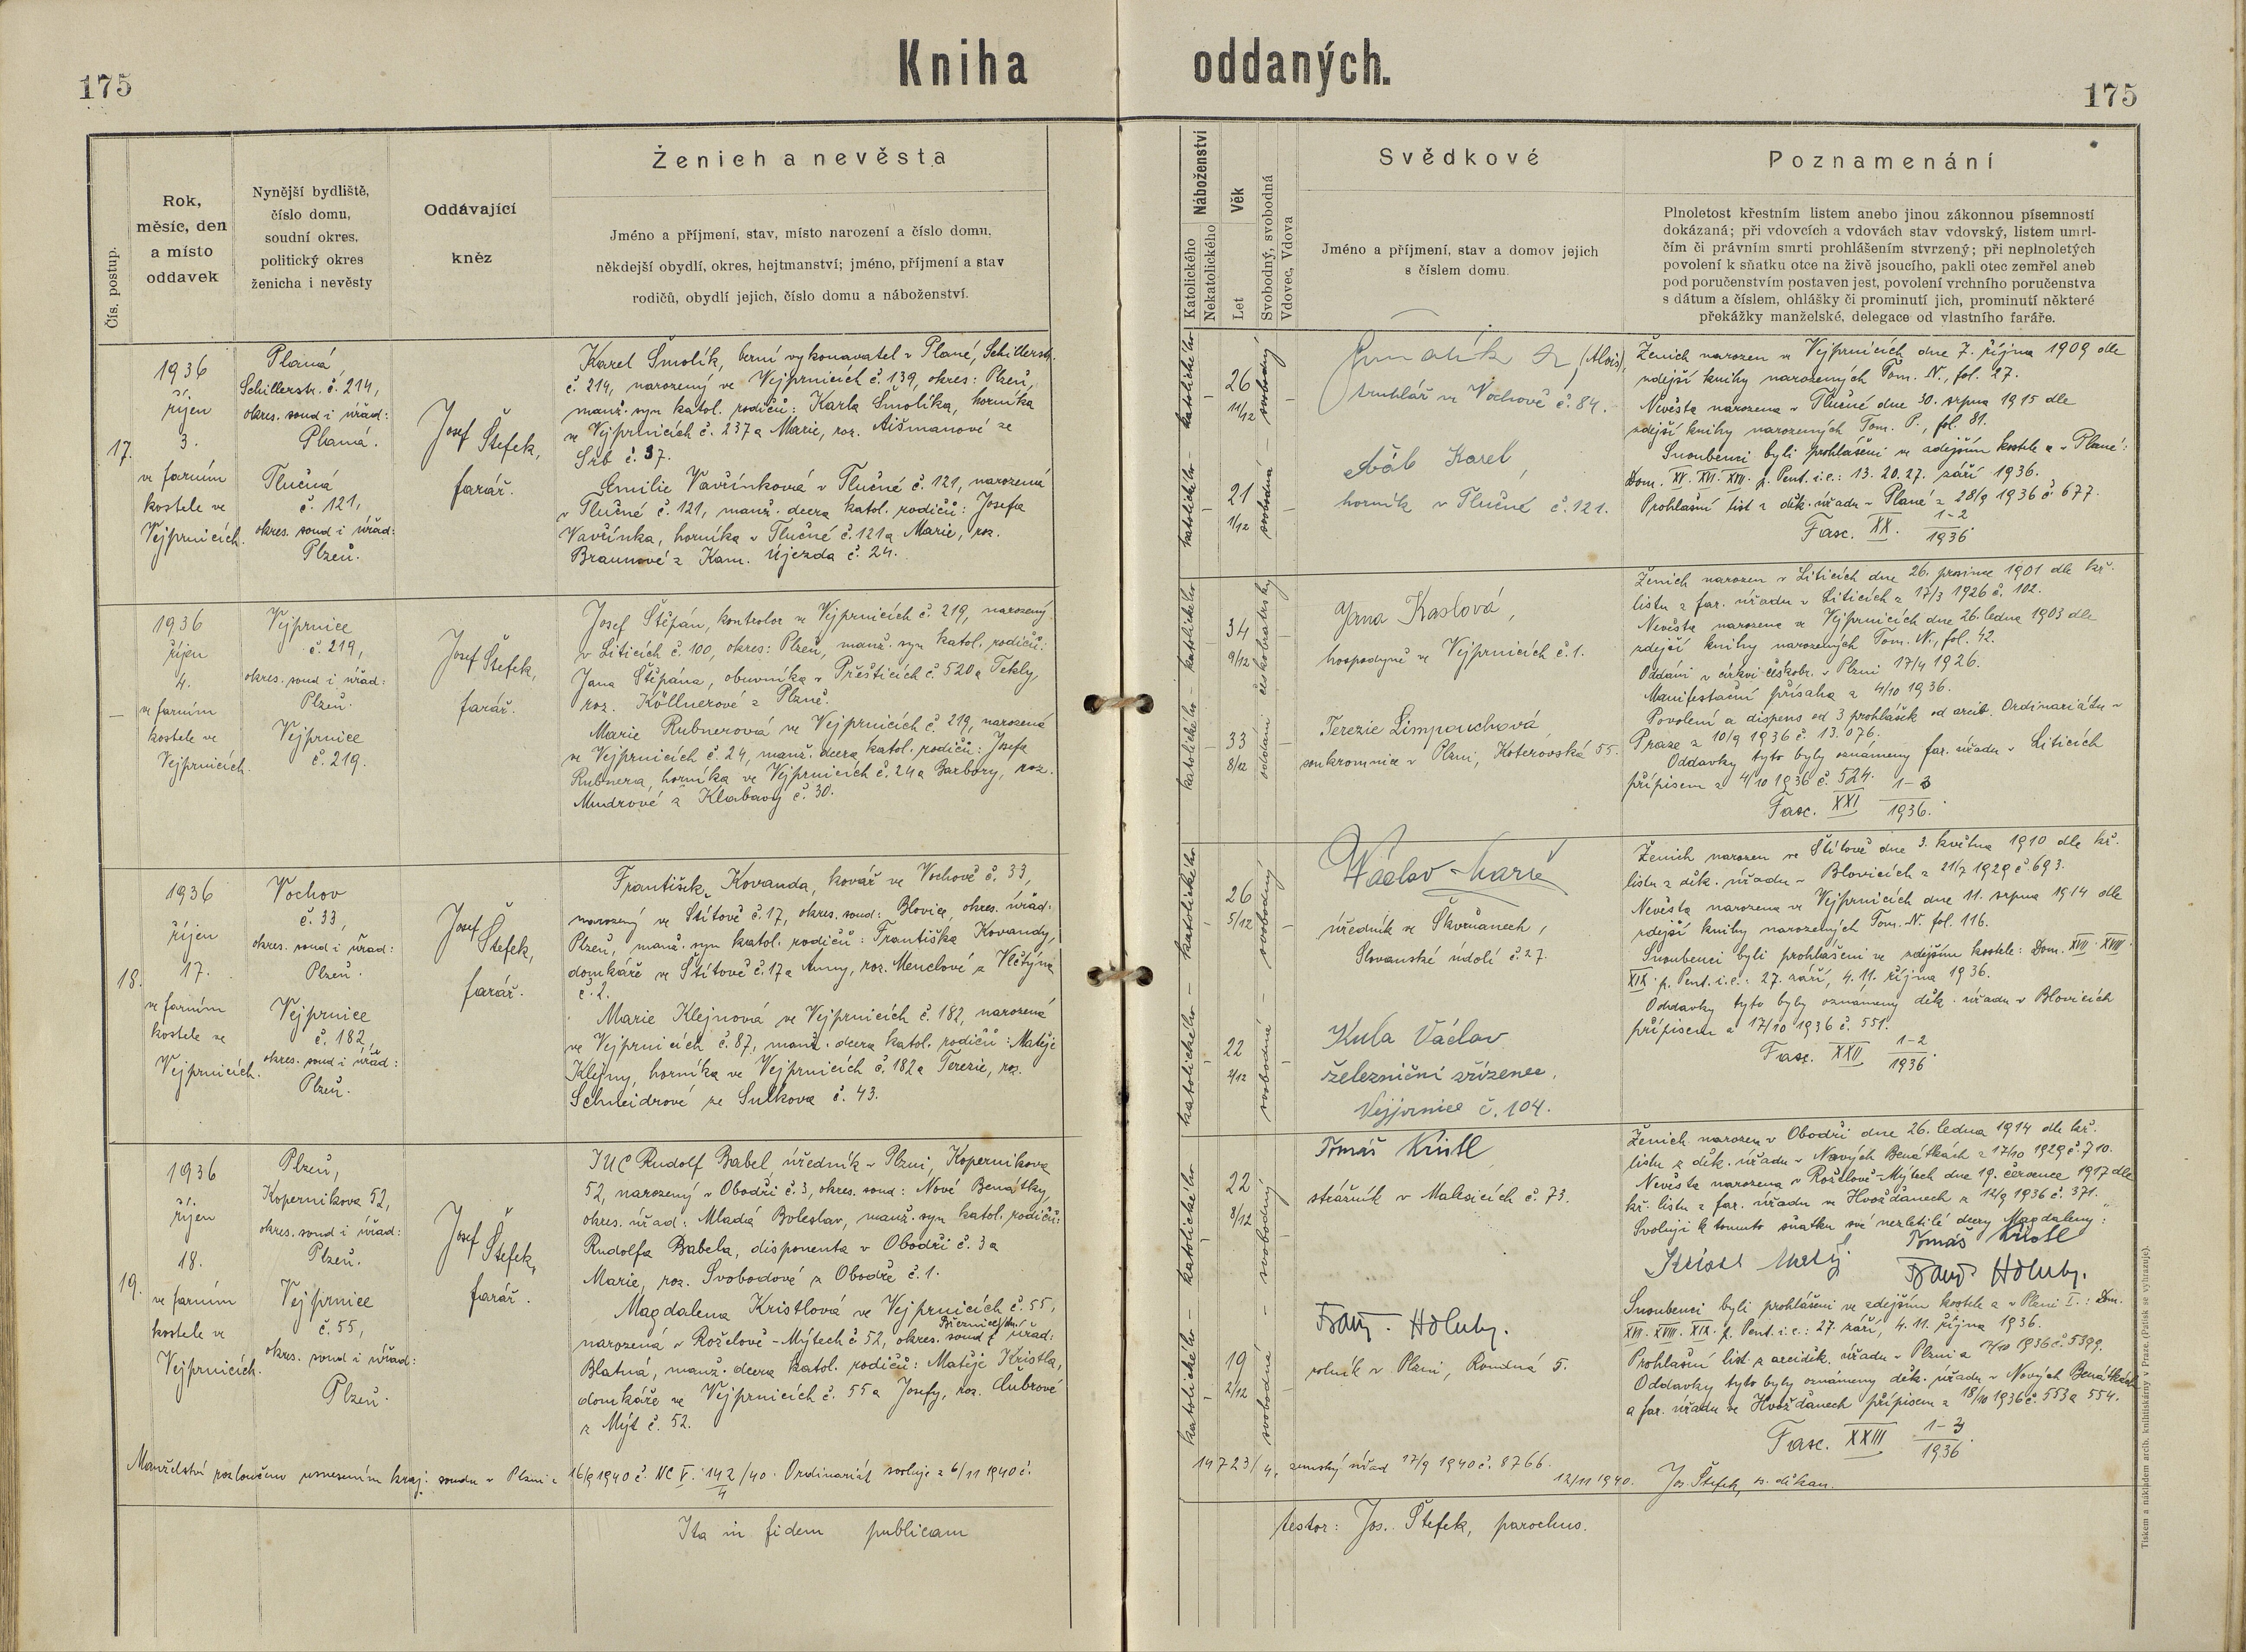 175
Kniha oddaných.
175
Čís. postup.
Rok,
měsíc, den
a místo
oddavek
Nynější bydliště,
číslo domu,
soudní okres,
politický okres
ženicha i nevěsty
Oddávající
kněz
Ženich a nevěsta
Jméno a příjmení, stav, místo narození a číslo domu,
někdejší obydlí, okres, hejtmanství; jméno, příjmení a stav
rodičů, obydlí jejich, číslo domu a náboženství.
Náboženství
Katolického
Nekatolického
Věk
Let
Svobodný, svobodná
Vdovec, Vdova
Svědkové
Jméno a příjmení, stav a domov jejich
s číslem domu.
Poznamenání
Plnoletost křestním listem anebo jinou zákonnou písemností
dokázaná; při vdovcích a vdovách stav vdovský, listem umrl-
čím či právním smrti prohlášením stvrzený; při neplnoletých
povolení k sňatku otce na živě jsoucího, pakli otec zemřel aneb
pod poručenstvím postaven jest, povolení vrchního poručenstva
s dátum a číslem, ohlášky či prominutí jich, prominutí některé
překážky manželské, delegace od vlastního faráře.
17.
1936
říjen
3.
ve farním
kostele ve
Vejprnicích.
Planá,
Schillerstr. č. 214,
okres. soud i úřad:
Planá.
Tlučná
č. 121,
okres. soud i úřad:
Plzeň.
Josef Štefek,
farář.
Karel Šmolík, berní vykonavatel v Plané, Schillerstr.
č. 214, narozený ve Vejprnicích č. 139, okres: Plzeň,
manž. syn katol. rodičů: Karla Šmolíka, horníka
ve Vejprnicích č. 237 a Marie, roz. Aišmanové ze
Srb č. 37.
Emilie Vavřínková v Tlučné č. 121, narozená
v Tlučné č. 121, manž. dcera katol. rodičů: Josefa
Vavřínka, horníka v Tlučné č. 121 a Marie, roz.
Braunové z Kam. Újezda č. 24.
katolického – katolického
26
11/12
21
1/12
svobodná – svobodný
(Alois),
truhlář ve Vochově č. 84.
Karel,
horník v Tlučné č. 121.
Ženich narozen ve Vejprnicích dne 7. října 1909 dle
zdejší knihy narozených Tom. N., fol. 27.
Nevěsta narozena v Tlučné dne 30. srpna 1915 dle
zdejší knihy narozených Tom. P., fol. 81.
Snoubenci byli prohlášeni ve zdejším kostele a v Plané:
Dom. XV. XVI. XVII. p. Pent. i.e.: 13. 20. 27. září 1936.
Prohlašní list z děk. úřadu v Plané z 28/9 1936 č. 677.
Fasc. XX. 1–2
1936.
–
1936
říjen
4.
ve farním
kostele ve
Vejprnicích.
Vejprnice
č. 219,
okres. soud i úřad:
Plzeň.
Vejprnice
č. 219.
Josef Štefek,
farář.
Josef Štěpán, kontrolor ve Vejprnicích č. 219, narozený
v Liticích č. 100, okres: Plzeň, manž. syn katol. rodičů:
Jana Štěpána, obuvníka v Přešticích č. 520 a Tekly,
roz. Köllnerové z Plzně.
Marie Rubnerová ve Vejprnicích č. 219, narozená
ve Vejprnicích č. 24, manž. dcera katol. rodičů: Josefa
Rubnera, horníka ve Vejprnicích č. 24 a Barbory, roz.
Mudrové z Klabavy č. 30.
katolického – katolického
34
9/12
33
8/12
oddáni českobratrsky
Jana Kaslová,
hospodyně ve Vejprnicích č. 1.
Terezie Limpouchová
soukromnice v Plzni, Koterovská 55.
Ženich narozen v Liticích dne 26. prosince 1901 dle kř.
listu z far. úřadu v Liticích z 17/3 1926 č. 102.
Nevěsta narozena ve Vejprnicích dne 26. ledna 1903 dle
zdejší knihy narozených Tom. N., fol. 42.
Oddáni v církvi českobr. v Plzni 17/4 1926.
Manifestační přísaha z 4/10 1936.
Povolení a dispens od 3 prohlášek od arcib. Ordinariátu v
Praze z 10/9 1936 č. 13.076.
Oddavky tyto byly oznámeny far. úřadu v Liticích
přípisem z 4/10 1936 č. 524.
Fasc. XXI 1–3
1936.
18.
1936
říjen
17.
ve farním
kostele ve
Vejprnicích.
Vochov
č. 33,
okres. soud i úřad:
Plzeň.
Vejprnice
č. 182,
okres. soud i úřad:
Plzeň.
Josef
Štefek,
farář.
František Kovanda, kovář ve Vochově č. 33,
narozený ve Štítově č. 17, okres. soud: Blovice, okres. úřad:
Plzeň, manž. syn katol. rodičů: Františka Kovandy,
domkáře ve Štítově č. 17 a Anny, roz. Menclové z Vlčtýna
č. 2.
Marie Klejnová ve Vejprnicích č. 182, narozená
ve Vejprnicích č. 87, manž. dcera katol. rodičů: Matěje
Klejny, horníka ve Vejprnicích č. 182 a Terezie, roz.
Schneidrové ze Sulkova č. 43.
katolického – katolického
26
5/12
22
2/12
svobodná – svobodný
Václav
úředník ve Škvrňanech,
Slovanské údolí č. 27.
Kula Václav
železniční zřízenec,
Vejprnice č. 104.
Ženich narozen ve Štítově dne 3. května 1910 dle kř.
listu z děk. úřadu v Blovicích z 21/7 1929 č. 693.
Nevěsta narozena ve Vejprnicích dne 11. srpna 1914 dle
zdejší knihy narozených Tom. N. fol. 116.
Snoubenci byli prohlášeni ve zdejším kostele: Dom. XVII. XVIII.
XIX. p. Pent. i.e.: 27. září, 4. 11. října 1936.
Oddavky tyto byly oznámeny děk. úřadu v Blovicích
přípisem z 17/10 1936 č. 551.
Fasc. XXII 1–2
1936.
19.
1936
říjen
18.
ve farním
kostele ve
Vejprnicích.
Plzeň,
Kopernikova 52,
okres. soud i úřad:
Plzeň.
Vejprnice
č. 55,
okres. soud i úřad:
Plzeň.
Josef
Štefek,
farář.
JUC Rudolf Babel, úředník v Plzni, Kopernikova
52, narozený v Obodři č. 3, okres. soud: Nové Benátky,
okres. úřad: Mladá Boleslav, manž. syn katol. rodičů:
Rudolfa Babela, disponenta v Obodři č. 3 a
Marie, roz. Svobodové z Obodře č. 1.
Magdalena Kristlová ve Vejprnicích č. 55,
Březnice
narozená v Roželově-Mýtech č 52, okres. soud úřad:
Blatná, manž. dcera katol. rodičů: Matěje Kristla,
domkáře ve Vejprnicích č. 55 a Josefy, roz. Čubrové
z Mýt č. 52.
katolického – katolického
22
8/12
19
2/12
svobodná – svobodný
Tomáš Kristl
strážník v Malesicích č. 73.
Frant. Holuby.
rolník v Plzni, Rondná 5.
Ženich narozen v Obodři dne 26. ledna 1914 dle kř.
listu z děk. úřadu v Nových Benátkách z 17/10 1929 č. 710.
Nevěsta narozena v Roželově-Mýtech dne 19. července 1917 dle
kř. listu z far. úřadu ve Hvožďanech z 12/9 1936 č. 371.
Svoluji k tomuto sňatku své nezletilé dcery Magdaleny:
Kristl Matěj Tomáš Kristl
Frant. Holuby.
Snoubenci byli prohlášeni ve zdejším kostele a v Plzni I.: Dom.
XVII. XVIII. XIX. p. Pent. i.e.: 27. září, 4. 11. října 1936.
Prohlašní list z arciděk. úřadu v Plzni z 17/10 1936 č. 5399.
Oddavky tyto byly oznámeny děk. úřadu v Nových Benátkách
a far. úřadu ve Hvožďanech přípisem z 18/10 1936 č. 553 a 554.
Fasc. XXIII 1–3
1936.
Manželství rozloučeno usnesením kraj. soudu v Plzni z 16/8 1940 č. NC V. 142/40. Ordinariát svoluje z 6/11 1940 č.
4
14723/4. zemský úřad 17/9 1940 č. 8766.
12/11 1940. Jos. Štefek, děkan.
Ita in fidem publicam
testor: Jos. Štefek, parochus.
Tiskem a nákladem arcib. knihtiskárny v Praze. (Patisk se vyhrazuje).